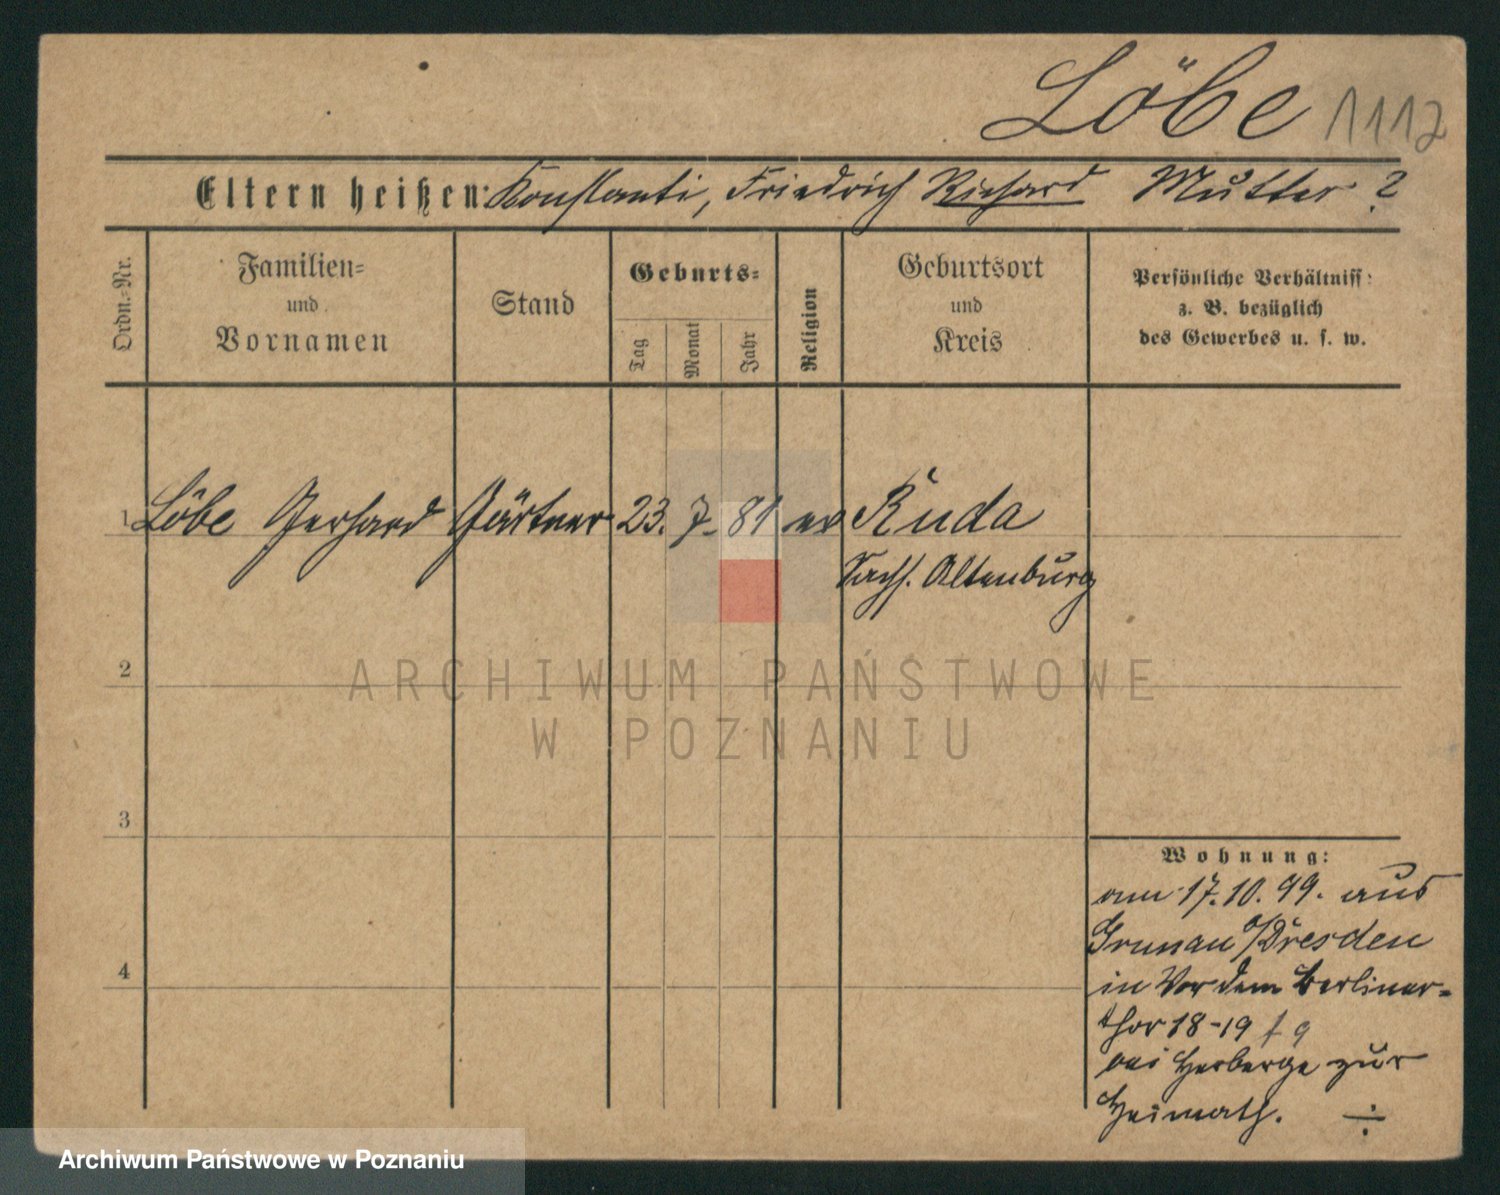 Löbe 1112
Eltern heißen: Konstanti, Friedrich Richard Mutter ?
Ordn.-Nr.
Familien=
und
Vornamen
Stand
Geburts=
Tag
Monat
Jahr
Religion
Geburtsort
und
Kreis
Persönliche Verhältniss:
z. B. bezüglich
des Gewerbes u. s. w.
1 Löbe Gerhard Gärtner 23. 7. 81 ev Ruda
Sachs. Altenburg
2
ARCHIWUM PAŃSTWOWE
W POZNANIU
3
4
Wohnung:
am 17.10.99. aus
Grunau /Dresden
in Vor dem Berliner=
thor 18-19
bei Herberge zur
Heimath. ÷
Archiwum Państwowe w Poznaniu